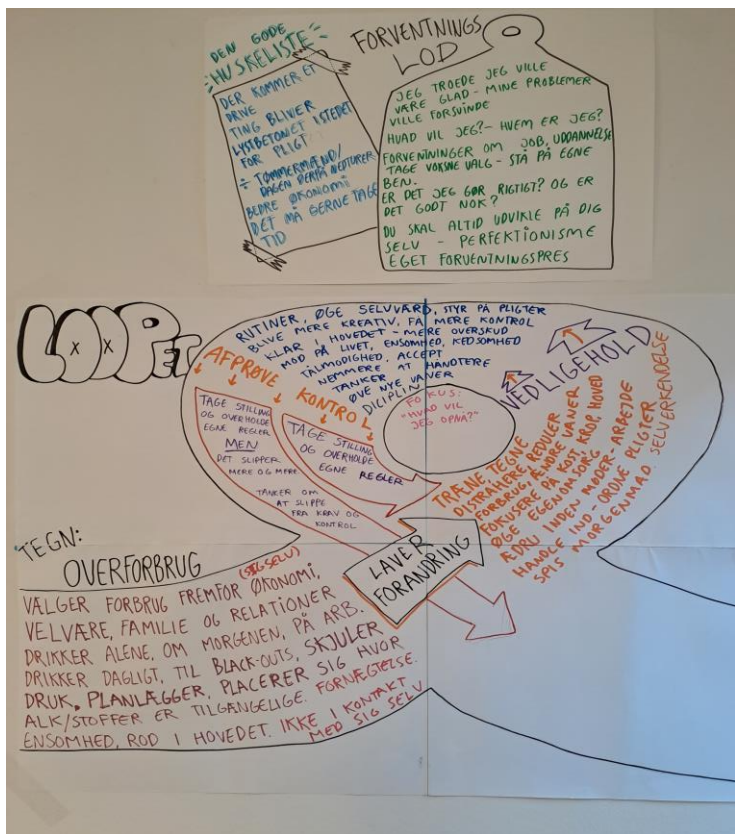 DEN GODE
HUSKELISTE
DER KOMMER ET
DRIVE
TING BLIVER
LYSTBETONET ISTEDET
FOR PLIGT
÷ TØMMERMÆND/
DAGEN DERPÅ NEDTURER
BEDRE ØKONOMI
DET MÅ GERNE TAGE
TID
FORVENTNINGS
LOD
JEG TROEDE JEG VILLE
VÆRE GLAD - MINE PROBLEMER
VILLE FORSVINDE
HVAD VIL JEG? - HVEM ER JEG?
FORVENTNINGER OM JOB, UDDANNELSE
TAGE VOKSNE VALG - STÅ PÅ EGNE
BEN.
ER DET JEG GØR RIGTIGT? OG ER
DET GODT NOK?
DU SKAL ALTID UDVIKLE PÅ DIG
SELV - PERFEKTIONISME
EGET FORVENTNINGSPRES
LOOPET
RUTINER, ØGE SELVVÆRD, STYR PÅ PLIGTER
BLIVE MERE KREATIV, FÅ MERE KONTROL
KLAR I HOVEDET - MERE OVERSKUD
MOD PÅ LIVET, ENSOMHED, KEDSOMHED
TÅLMODIGHED, ACCEPT
NEMMERE AT HÅNDTERE
TANKER
ØVE NYE VANER
DICIPLIN
AFPRØVE
KONTROL
VEDLIGEHOLD
FOKUS:
"HVAD VIL
JEG OPNÅ?"
TAGE STILLING
OG OVERHOLDE
EGNE REGLER
MEN
DET SLIPPER
MERE OG MERE
TANKER OM
AT SLIPPE
FRA KRAV OG
KONTROL
TAGE STILLING
OG OVERHOLDE
EGNE REGLER
TRÆNE, TEGNE
DISTRAHERE, REDUCER
FORBRUG, ÆNDRE VANER
FOKUSERE PÅ KOST, KROP, HOVED
ØGE EGENOMSORG
ÆDRU INDEN MØDER - ARBEJDE
HANDLE IND - ORDNE PLIGTER
SPIS MORGENMAD SELVERKENDELSE
LAVER
FORANDRING
TEGN:
OVERFORBRUG
(SIG SELV)
VÆLGER FORBRUG FREMFOR ØKONOMI,
VELVÆRE, FAMILIE OG RELATIONER
DRIKKER ALENE, OM MORGENEN, PÅ ARB.
DRIKKER DAGLIGT, TIL BLACK-OUTS, SKJULER
DRUK, PLANLÆGGER, PLACERER SIG HVOR
ALK/STOFFER ER TILGÆNGELIGE. FORNÆGTELSE.
ENSOMHED, ROD I HOVEDET. IKKE I KONTAKT
MED SIG SELV